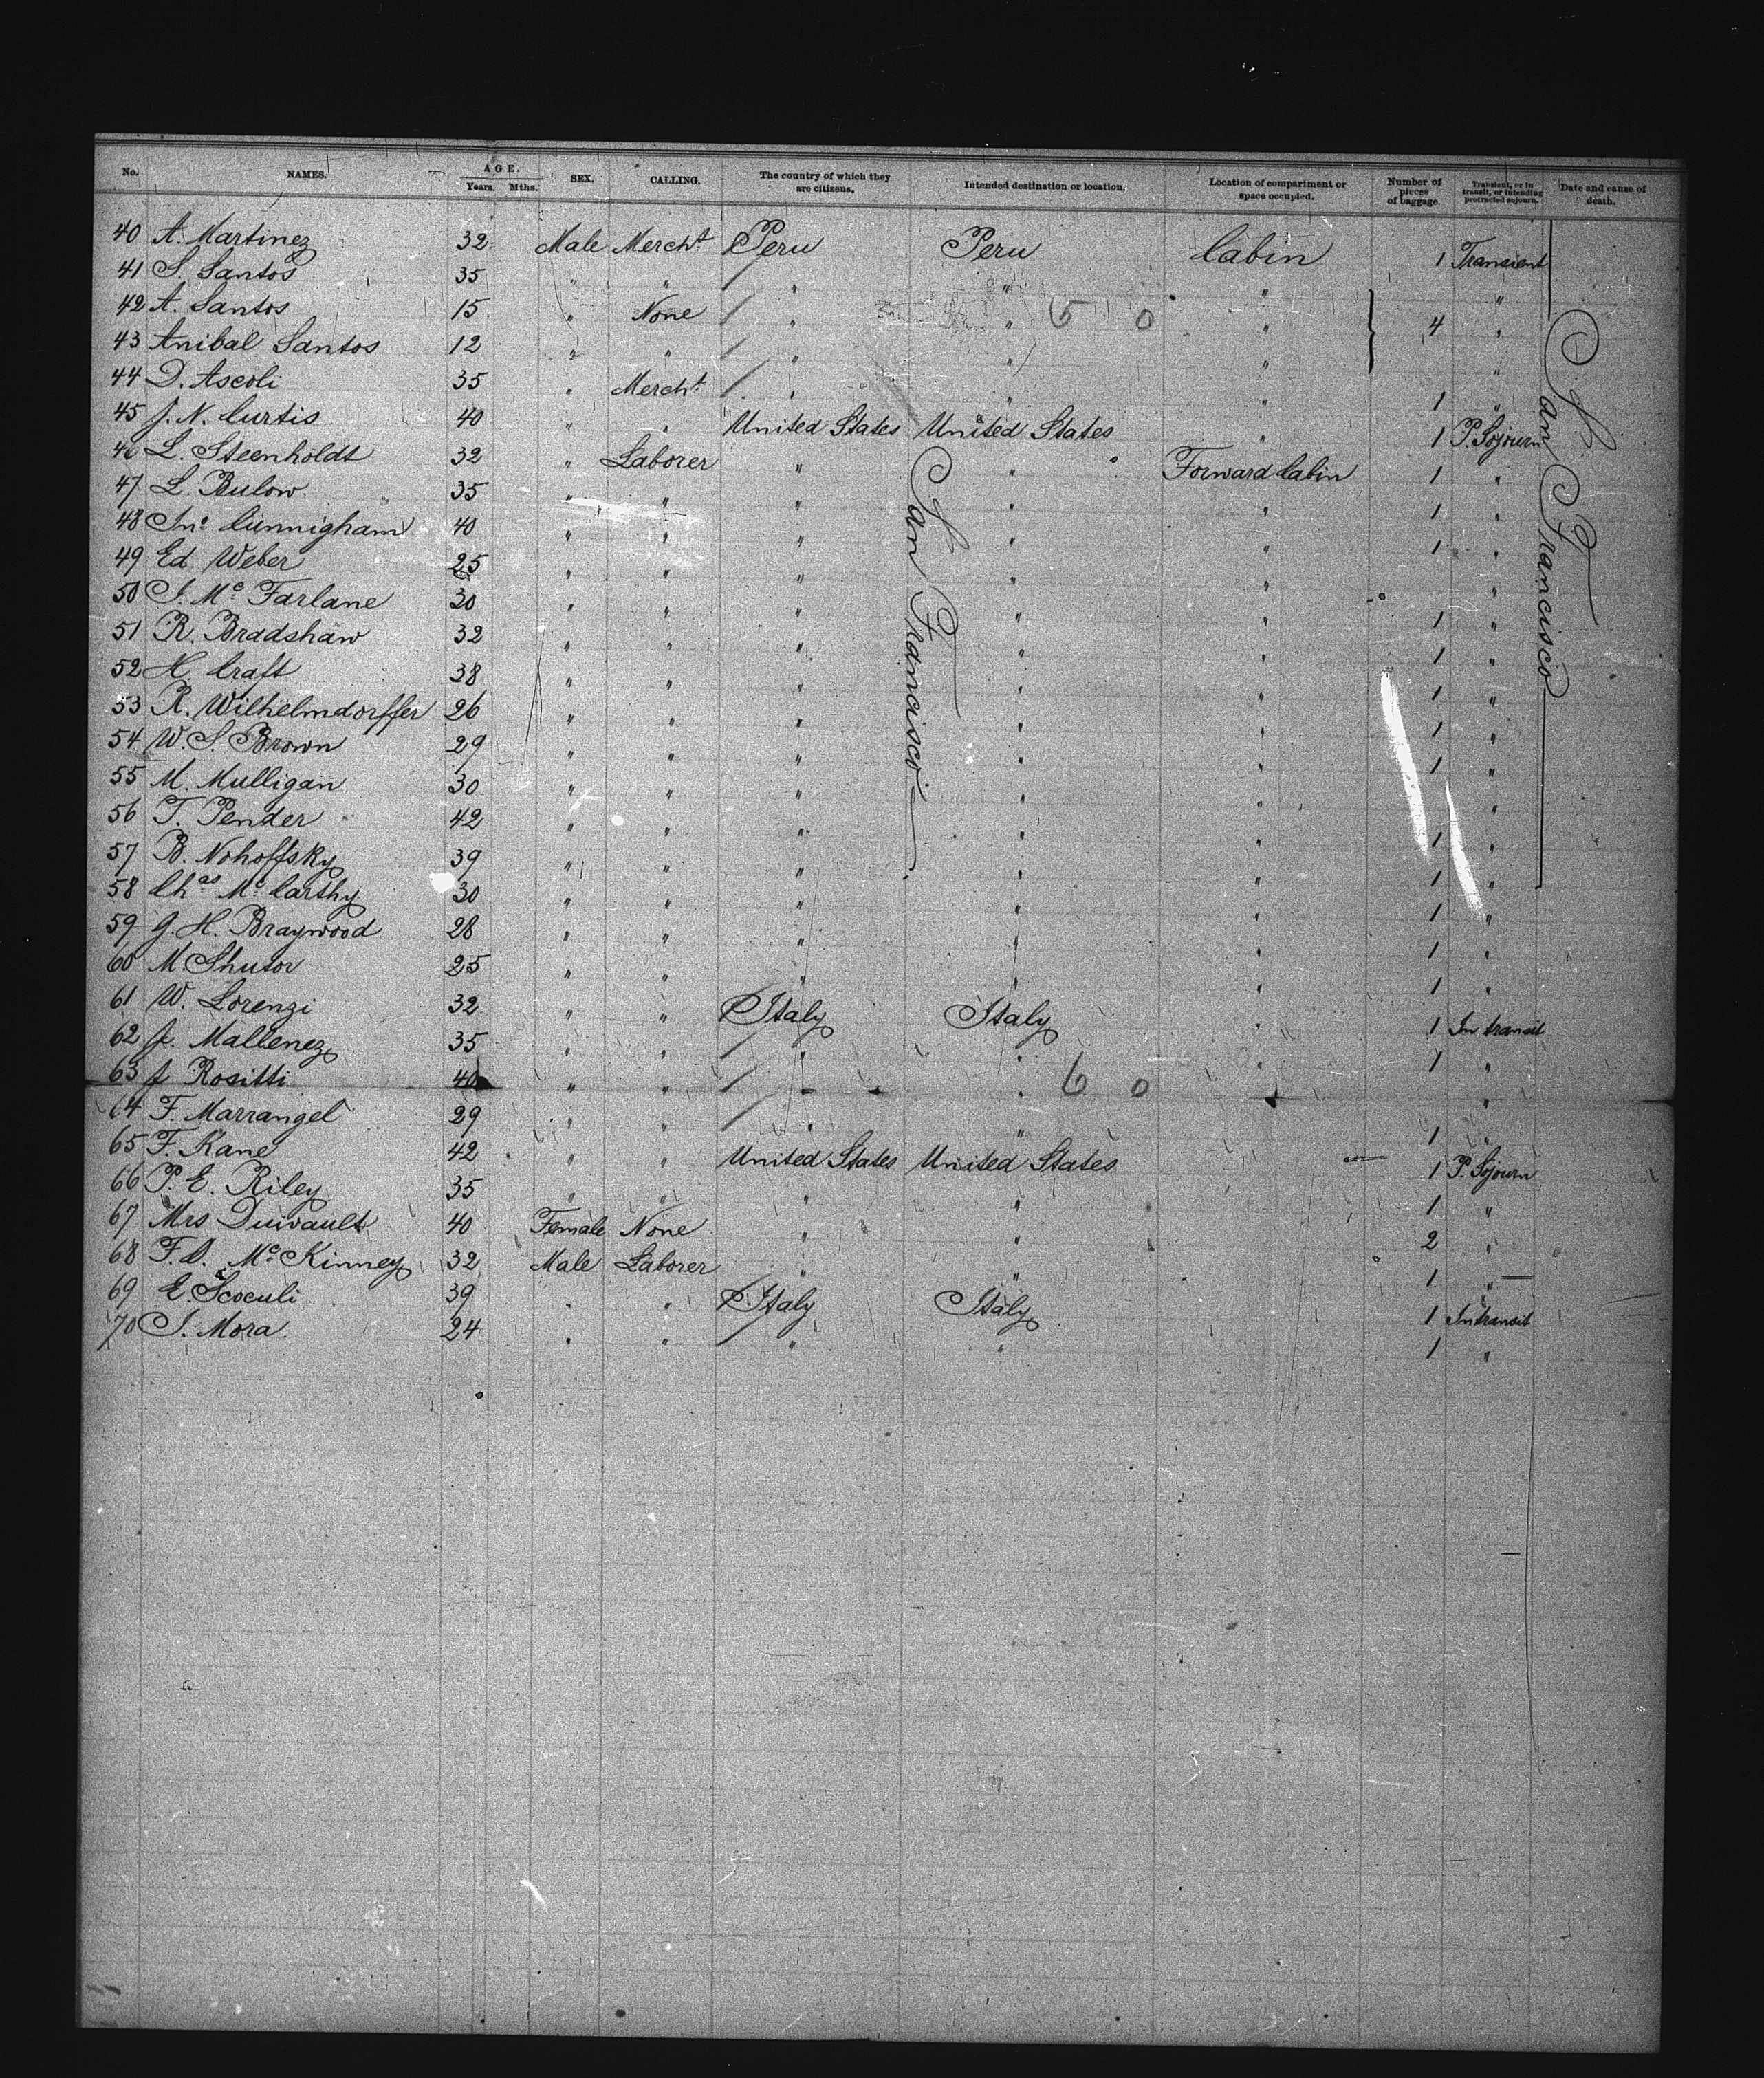 No. NAMES. AGE. Years. Mths. SEX. CALLING. The country of which they are citizens. Intended destination or location. Location of compartment or space occupied. Number of pieces of baggage. Transient, or in transit, or intending protracted sojourn. Date and cause of death.
40 A. Martinez 32 Male Mercht Peru Peru Cabin 1 Transient
41 S. Santos 35 " " " " " "
42 A. Santos 15 " None " " " 4 "
43 Anibal Santos 12 " " " " " "
44 D. Ascoli 35 " Mercht " " " 1 "
45 J. N. Curtis 40 " " United States United States " 1 P. Sojourn
46 L. Steenholdt 32 " Laborer " " Forward Cabin 1 "
47 L. Bulow 35 " " " " " 1 "
48 Jno Cunnigham 40 " " " " " 1 "
49 Ed Weber 25 " " " " " "
50 J. Mc Farlane 30 " " " " " 1 "
51 R. Bradshaw 32 " " " " " 1 "
52 H. Craft 38 " " " " " 1 "
53 R. Wilhelmdorffer 26 " " " " " 1 "
54 W. S. Brown 29 " " " " " 1 "
55 M. Mulligan 30 " " " " " "
56 T. Pender 42 " " " " " 1 "
57 B. Nohoffsky 39 " " " " " 1 "
58 Chas Mc Carthy 30 " " " " " 1 "
59 G. H. Braywood 28 " " " " " 1 "
60 M. Shutor 25 " " " " " 1 "
61 W. Lorenzi 32 " " Italy Italy " 1 In transit
62 J. Mallenez 35 " " " " " 1 "
63 J Rositti 40 " " " " "
64 F. Marrangel 29 " " " " 1 "
65 F. Kane 42 " " United States United States 1 P. Sojourn
66 P. E. Riley 35 " " " " 1 "
67 Mrs Duivault 40 Female None " " 2 "
68 F. D. McKinney 32 Male Laborer " " 1 "
69 E. Scoculi 39 " " Italy Italy 1 In transit
70 J. Mora 24 " " " " 1 "
6 0
6 0
San Francisco
San Francisco